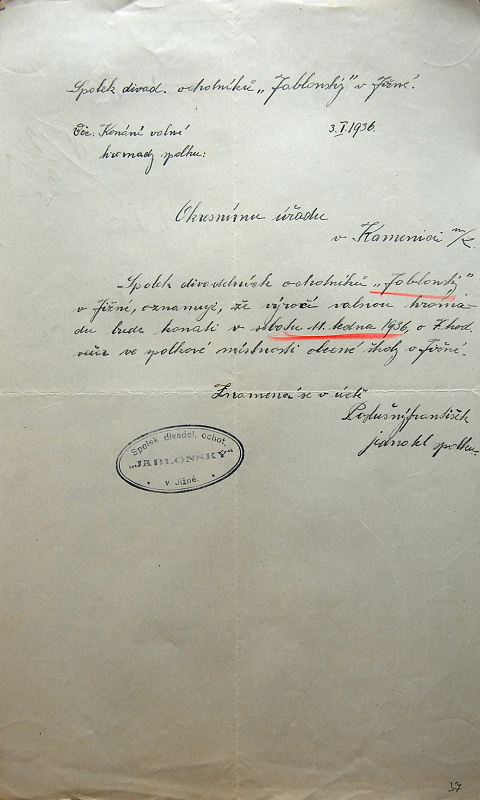 Spolek divad. ochotníků „Jablonský" v Jižné.
Věc: Konání valné
3.I.1936.
hromady spolku:
Okresnímu úřadu
v Kamenici n/L.
Spolek divadelních ochotníků „Jablonský"
v Jižné, oznamuji, že výročí valnou hroma
du bude konati v sobotu 11. ledna 1936, o 7. hod.
več. ve spolkové místnosti obecné školy v Jižné.
Znamená se v úctě
Poslušný František
jednatel spolku.
Spolek divadel. ochot.
„JABLONSKÝ"
v Jižné.
37